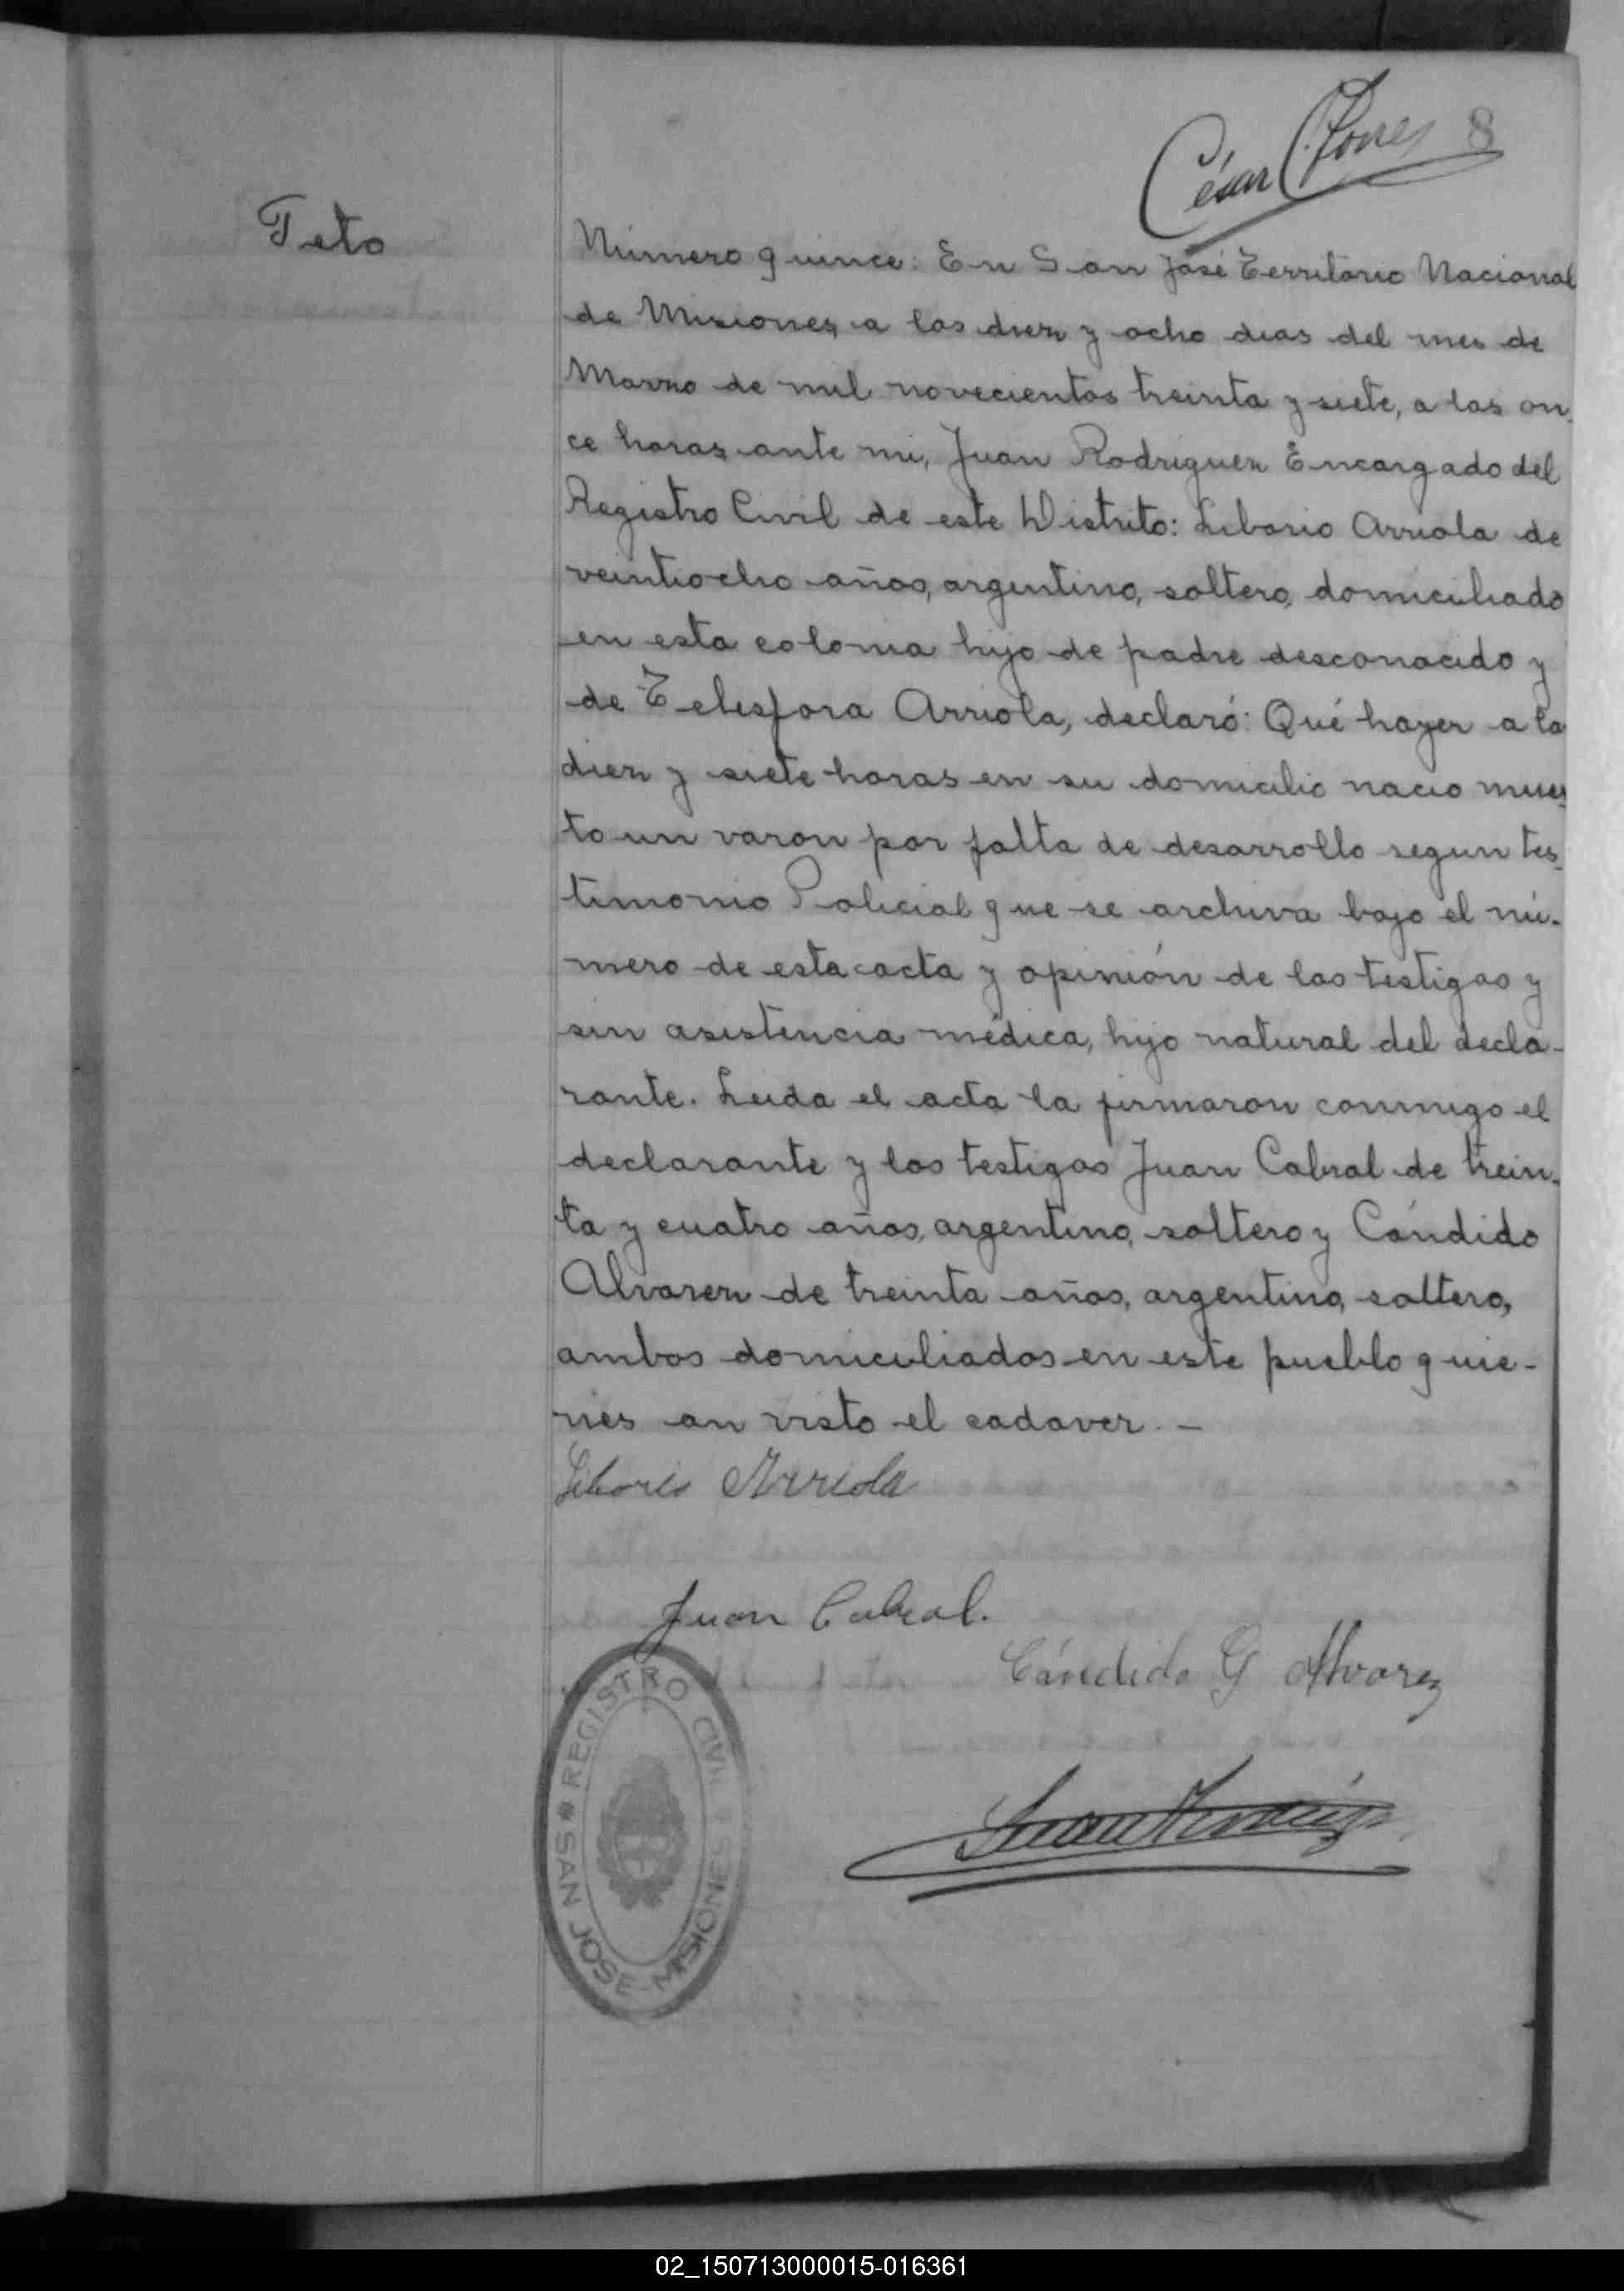 César
8
Feto
Número quince: En San José Territorio Nacional
de Misiones, a los diez y ocho dias del mes de
Marzo de mil novecientos treinta y siete, a las on_
ce horas, ante mi, Juan Rodriguez Encargado del
Registro Civil de este Distrito: Liborio Arriola de
veintiocho años, argentino, soltero, domiciliado
en esta colonia hijo de padre desconocido y
de Telesfora Arriola, declaró: Qué hayer a la
diez y siete horas en su domicilio nacio muer_
to un varon por falta de desarrollo segun tes_
timonio Policial que se archiva bajo el nú-
mero de esta acta y opinión de los testigos y
sin asistencia médica, hijo natural del decla-
rante. Leida el acta la firmaron conmigo el
declarante y los testigos Juan Cabral de trein_
ta y cuatro años, argentino, soltero y Cándido
Alvarez de treinta años, argentino, soltero,
ambos domiciliados en este pueblo quie-
nes an visto el cadaver. -
Liborio Arriola
Juan Cabral.
Cándido G Alvarez
REGISTRO CIVIL
* SAN JOSE - MISIONES
02_150713000015-016361